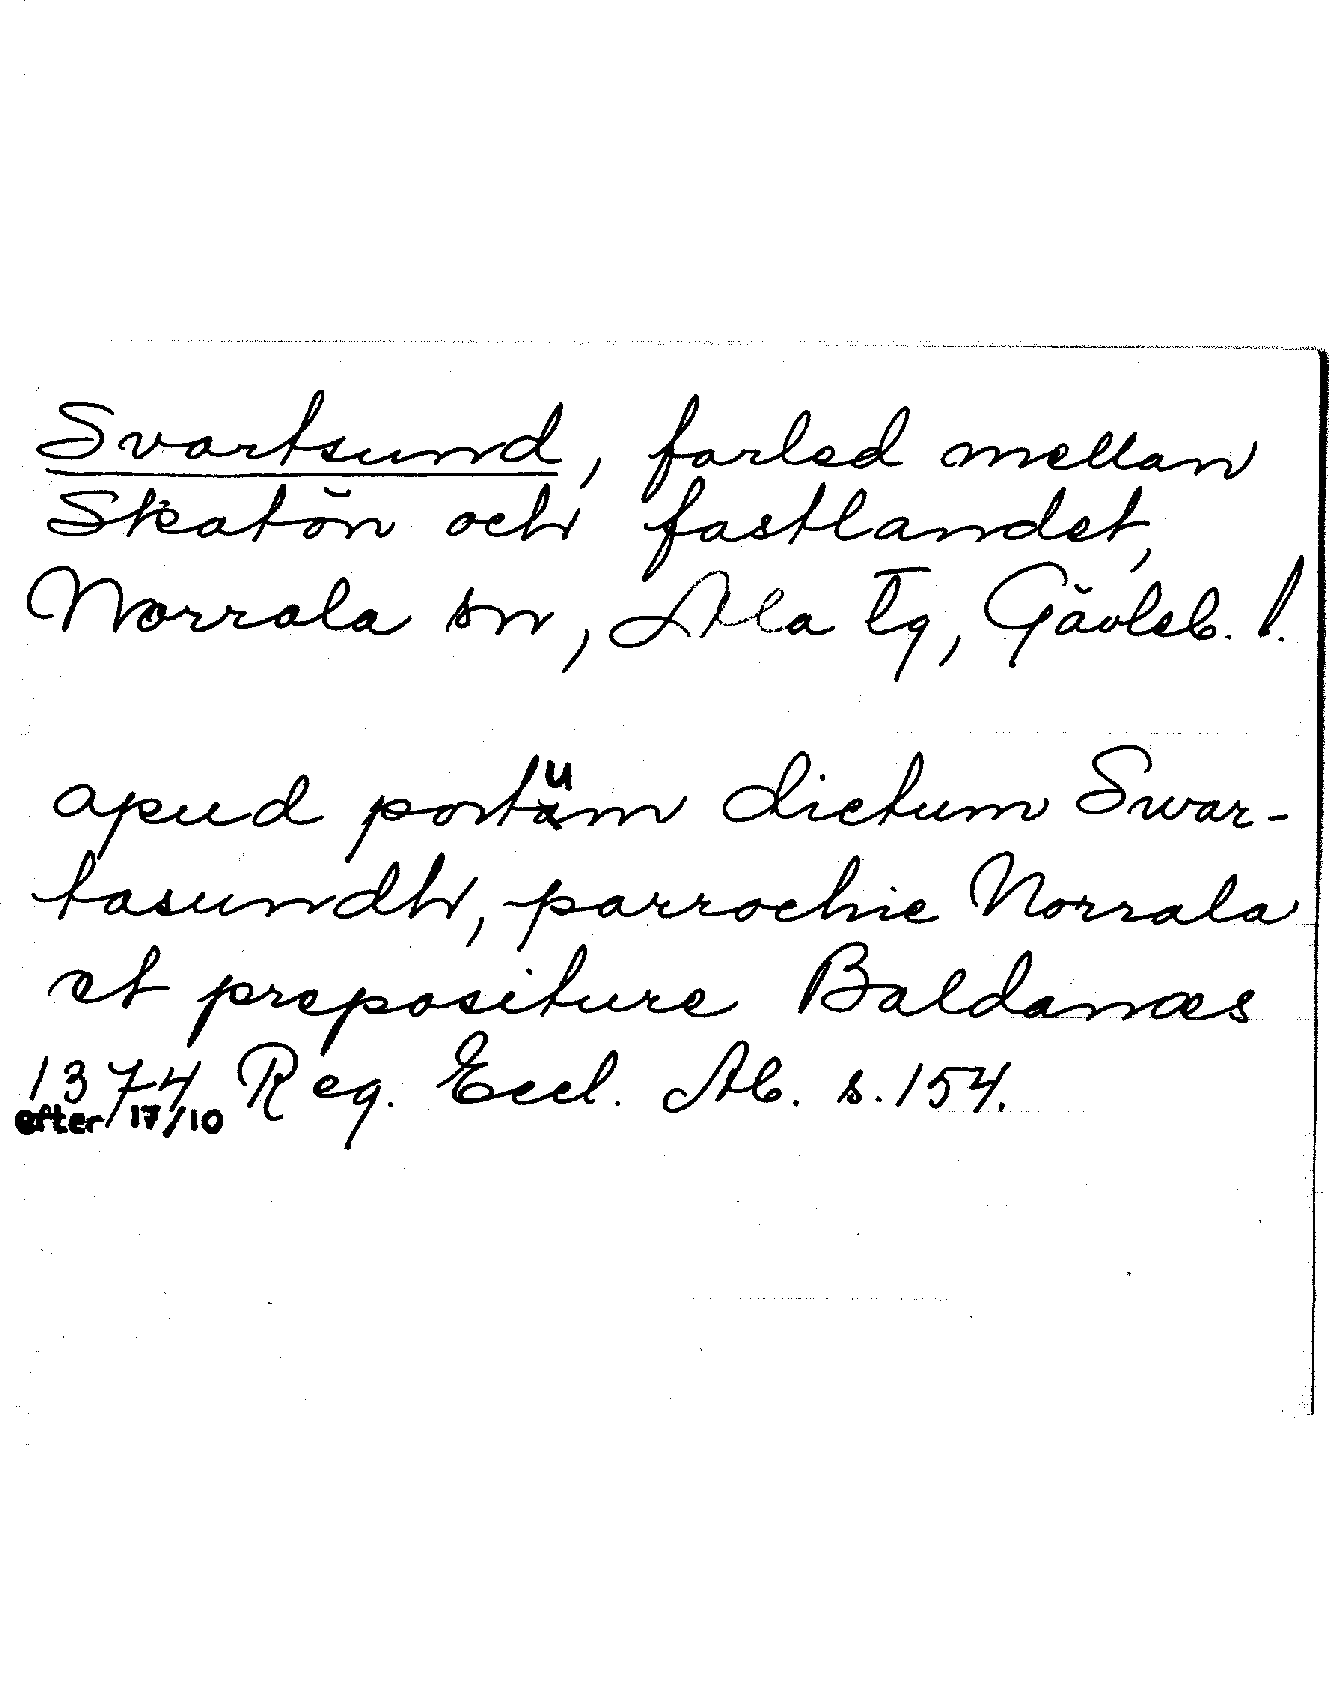 Svartsund, farled mellan
Skatön och fastlandet,
Norrala sn, Ala tg, Gävleb. l.
apud portum dictum Swar-
tasundh, parrochie Norrala
et prepositure Baldanæs
1374 Reg. Eccl. Ab. s. 154.
efter 17/10